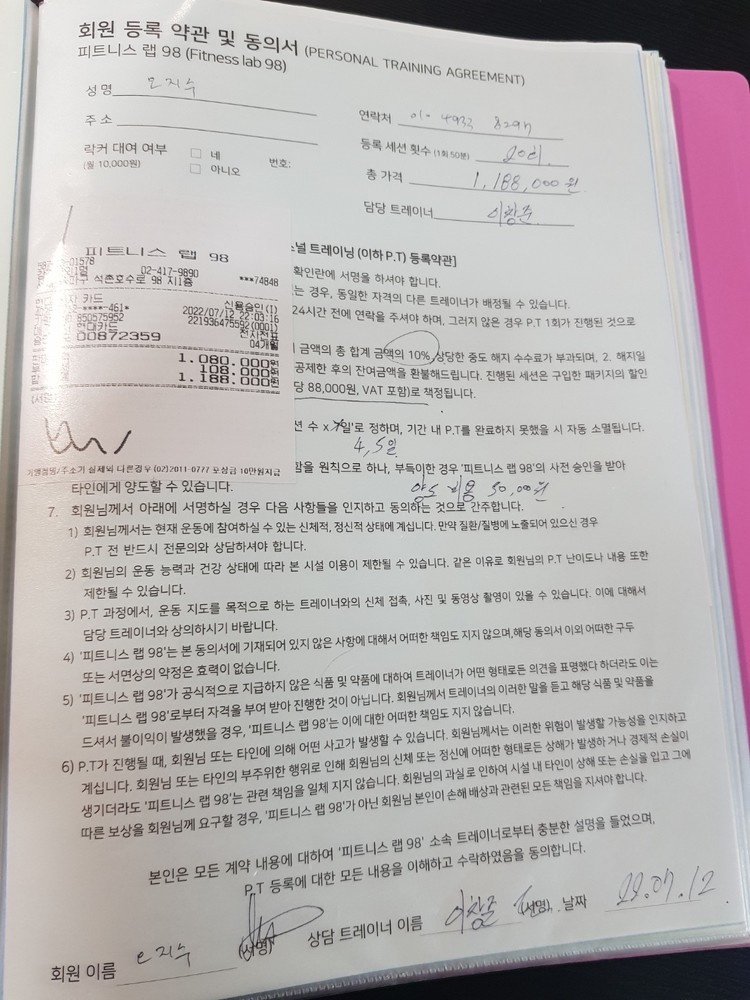 회원 등록 약관 및 동의서 (PERSONAL TRAINING AGREEMENT)
피트니스 랩 98 (Fitness lab 98)
성 명 오지수
주 소
연락처 010 4933 8297
락커 대여 여부 □ 네 번호:
(월 10,000원) □ 아니오
등록 세션 횟수 (1회 50분) 20회.
총 가격 1,188,000원
담당 트레이너 이창준
피트니스 랩 98
02-417-9890
석촌호수로 98 지1층 ***74848
카드 신용승인(1)
2022/07/12 22:03:16
850575952 221936475592(0001)
현대카드 전자전표
00872359 04개월
1.080.000원
108.000원
1.188.000원
가맹점명/주소가 실제와 다른경우 (02)2011-0777 포상금 10만원지급
널 트레이닝 (이하 P.T) 등록약관]
확인란에 서명을 하셔야 합니다.
는 경우, 동일한 자격의 다른 트레이너가 배정될 수 있습니다.
24시간 전에 연락을 주셔야 하며, 그러지 않은 경우 P.T 1회가 진행된 것으로
금액의 총 합계 금액의 10% 상당한 중도 해지 수수료가 부과되며, 2. 해지일
공제한 후의 잔여금액을 환불해드립니다. 진행된 세션은 구입한 패키지의 할인
당 88,000원, VAT 포함)로 책정됩니다.
션 수 x 일'로 정하며, 기간 내 P.T를 완료하지 못했을 시 자동 소멸됩니다.
4,5일
함을 원칙으로 하나, 부득이한 경우 '피트니스 랩 98'의 사전 승인을 받아
타인에게 양도할 수 있습니다. 양도 비용 50,000원
7. 회원님께서 아래에 서명하실 경우 다음 사항들을 인지하고 동의하는 것으로 간주합니다.
1) 회원님께서는 현재 운동에 참여하실 수 있는 신체적, 정신적 상태에 계십니다. 만약 질환/질병에 노출되어 있으신 경우
P.T 전 반드시 전문의와 상담하셔야 합니다.
2) 회원님의 운동 능력과 건강 상태에 따라 본 시설 이용이 제한될 수 있습니다. 같은 이유로 회원님의 P.T 난이도나 내용 또한
제한될 수 있습니다.
3) P.T 과정에서, 운동 지도를 목적으로 하는 트레이너와의 신체 접촉, 사진 및 동영상 촬영이 있을 수 있습니다. 이에 대해서
담당 트레이너와 상의하시기 바랍니다.
4) '피트니스 랩 98'는 본 동의서에 기재되어 있지 않은 사항에 대해서 어떠한 책임도 지지 않으며,해당 동의서 이외 어떠한 구두
또는 서면상의 약정은 효력이 없습니다.
5) '피트니스 랩 98'가 공식적으로 지급하지 않은 식품 및 약품에 대하여 트레이너가 어떤 형태로든 의견을 표명했다 하더라도 이는
'피트니스 랩 98'로부터 자격을 부여 받아 진행한 것이 아닙니다. 회원님께서 트레이너의 이러한 말을 듣고 해당 식품 및 약품을
드셔서 불이익이 발생했을 경우, '피트니스 랩 98'는 이에 대한 어떠한 책임도 지지 않습니다.
6) P.T가 진행될 때, 회원님 또는 타인에 의해 어떤 사고가 발생할 수 있습니다. 회원님께서는 이러한 위험이 발생할 가능성을 인지하고
계십니다. 회원님 또는 타인의 부주위한 행위로 인해 회원님의 신체 또는 정신에 어떠한 형태로든 상해가 발생하 거나 경제적 손실이
생기더라도 '피트니스 랩 98'는 관련 책임을 일체 지지 않습니다. 회원님의 과실로 인하여 시설 내 타인이 상해 또는 손실을 입고 그에
따른 보상을 회원님께 요구할 경우, '피트니스 랩 98'가 아닌 회원님 본인이 손해 배상과 관련된 모든 책임을 지셔야 합니다.
본인은 모든 계약 내용에 대하여 '피트니스 랩 98' 소속 트레이너로부터 충분한 설명을 들었으며,
P.T 등록에 대한 모든 내용을 이해하고 수락하였음을 동의합니다.
회원 이름 오지수 (서명) 상담 트레이너 이름 이창준 (서명). 날짜 22.07.12